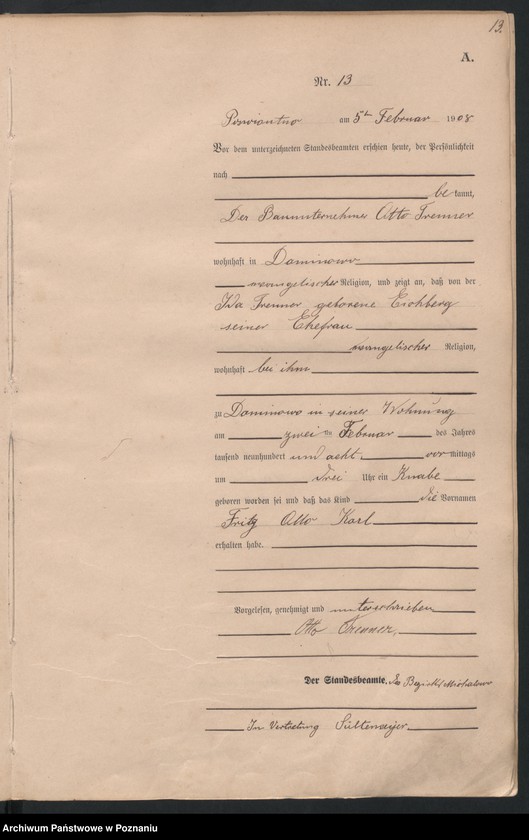 13.
A.
Nr. 13
am 5ten Februar 1908
Vor dem unterzeichneten Standesbeamten erschien heute, der Persönlichkeit
nach
be kannt,
Der Bauunternehmer Otto Trenner
wohnhaft in Dominowo
evangelischer Religion, und zeigt an, daß von der
Ida Trenner geborene Eichberg
seiner Ehefrau
evangelischer Religion,
wohnhaft bei ihm
zu Dominowo in seiner Wohnung
am zweiten Februar des Jahres
tausend neunhundert und acht vor mittags
um drei Uhr ein Knabe
geboren worden sei und daß das Kind die Vornamen
Fritz Otto Karl
erhalten habe.
Vorgelesen, genehmigt und unterschrieben
Otto Trenner.
Der Standesbeamte, des Bezirks
In Vertretung
Archiwum Państwowe w Poznaniu